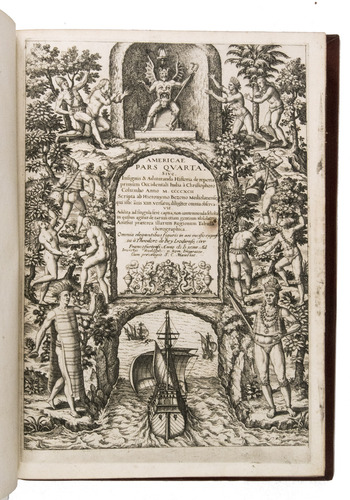 AMERICAE
PARS QVARTA.
Sive,
Insignis & Admiranda Historia de reperta
primùm Occidentali India à Christophoro
Columbo Anno M. CCCCXCII
Scripta ab Hieronymo Bezono Mediolanense,
qui istic annis XIIII. versatus, diligenter omnia observa-
vit.
Addita ad singula fere capita, non contemnenda scholia,
in quibus agitur de earum etiam gentium idololatria.
Accessit præterea illarum Regionum Tabula
chorographica.
Omnia elegantibus figuris in aes incisis expressa
à Theodoro de Bry Leodiense, cive
Francofurtensi, Anno
Cum privilegio S. C. Maiestatis